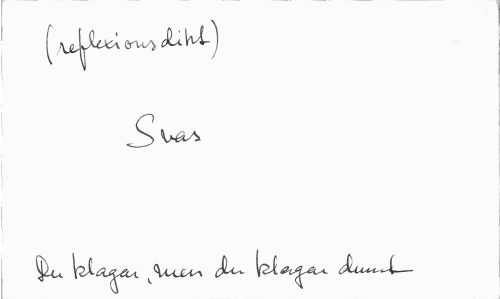 (reflexionsdikt)
Svar
Du klagar, men du klagar dumt